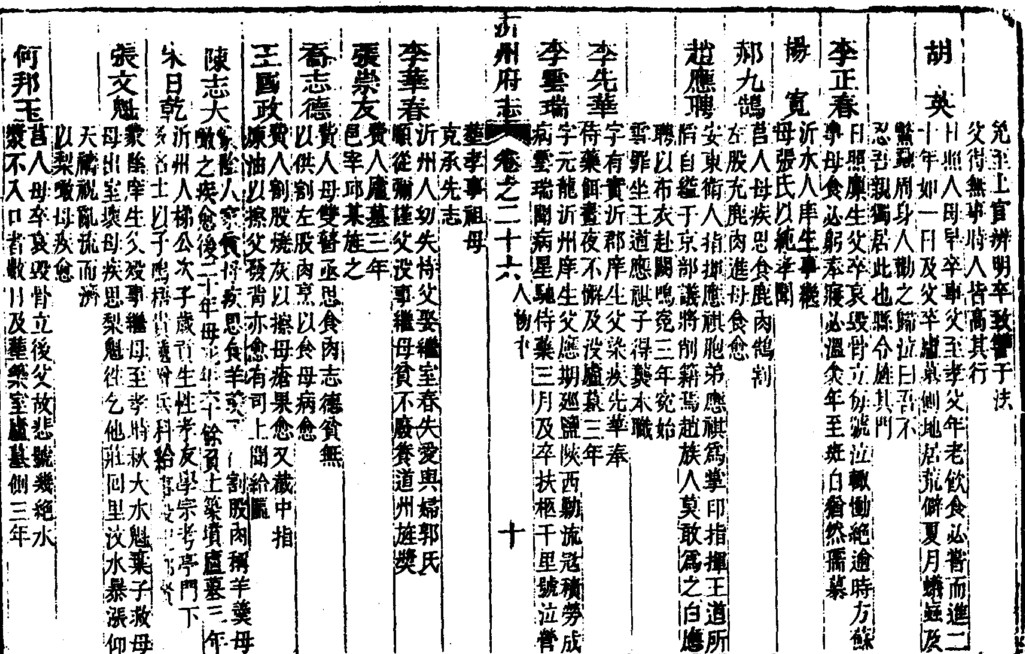 免至上官辨明卒致讐于法
父得無事時人皆高其行
胡英
日照人母早卒事父至孝父年老飲食必嘗而進二
十年如一日及父卒廬墓側地居荒僻夏月蟻蝱及
周身人勸之歸泣曰吾不
忍吾親獨居此也縣令旌其門
李正春
日照廩生父卒哀毀骨立每號泣輙慟絶逾時方蘇
事母食必躬奉寢必溫
年至斑白猶然孺慕
楊寬
沂水人庠生事繼
母張氏以純孝聞
郝九鵠
莒人母疾思食鹿肉鵠割
左股充鹿肉進母食愈
趙應聘
安東衛人指揮應祺胞弟應祺爲掌印指揮王道所
自縊于京部議將削籍焉趙族人莫敢爲之白應
聘以布衣赴闕鳴寃三年寃始
雪罪坐王道應祺子得襲本職
李先華
字有實沂郡庠生父染疾先華奉
侍藥餌晝夜不懈及没廬墓三年
李雲瑞
字元龍沂州庠生父應期廵鹽陝西勦流寇積勞成
病雲瑞聞病星馳侍藥三月及卒扶柩千里號泣營
沂州府志
卷之二十六
人物
十
葬孝事祖母
克承先志
李華春
沂州人切失恃父娶繼室春失愛與婦郭氏
順從彌謹父没事繼母貧不廢養道州旌奬
張崇友
費人廬墓三年
邑宰邱某旌之
喬志德
費人母雙瞽亟思食肉志德貧無
以供割左股肉烹以食母病愈
王國政
費人割股燒灰以擦母瘡果愈又截中指
油以擦父發背亦愈有司上聞給匾
陳志大
割股肉稱羊羹母
之疾愈後二十年母
負土築墳廬墓三年
日乾
沂州人梯公次子歲貢生性孝友學宗考亭門下
張文魁
蒙陰庠生父殁事繼母至孝時秋大水魁棄子救母
母出室壞母疾思梨魁徃乞他莊回里汶水暴漲仰
天禱祝亂流而濟
以梨
母疾愈
何邦玉
莒人母卒哀毀骨立後父故悲號幾絶水
漿不入口者數日及葬築室廬墓側三年